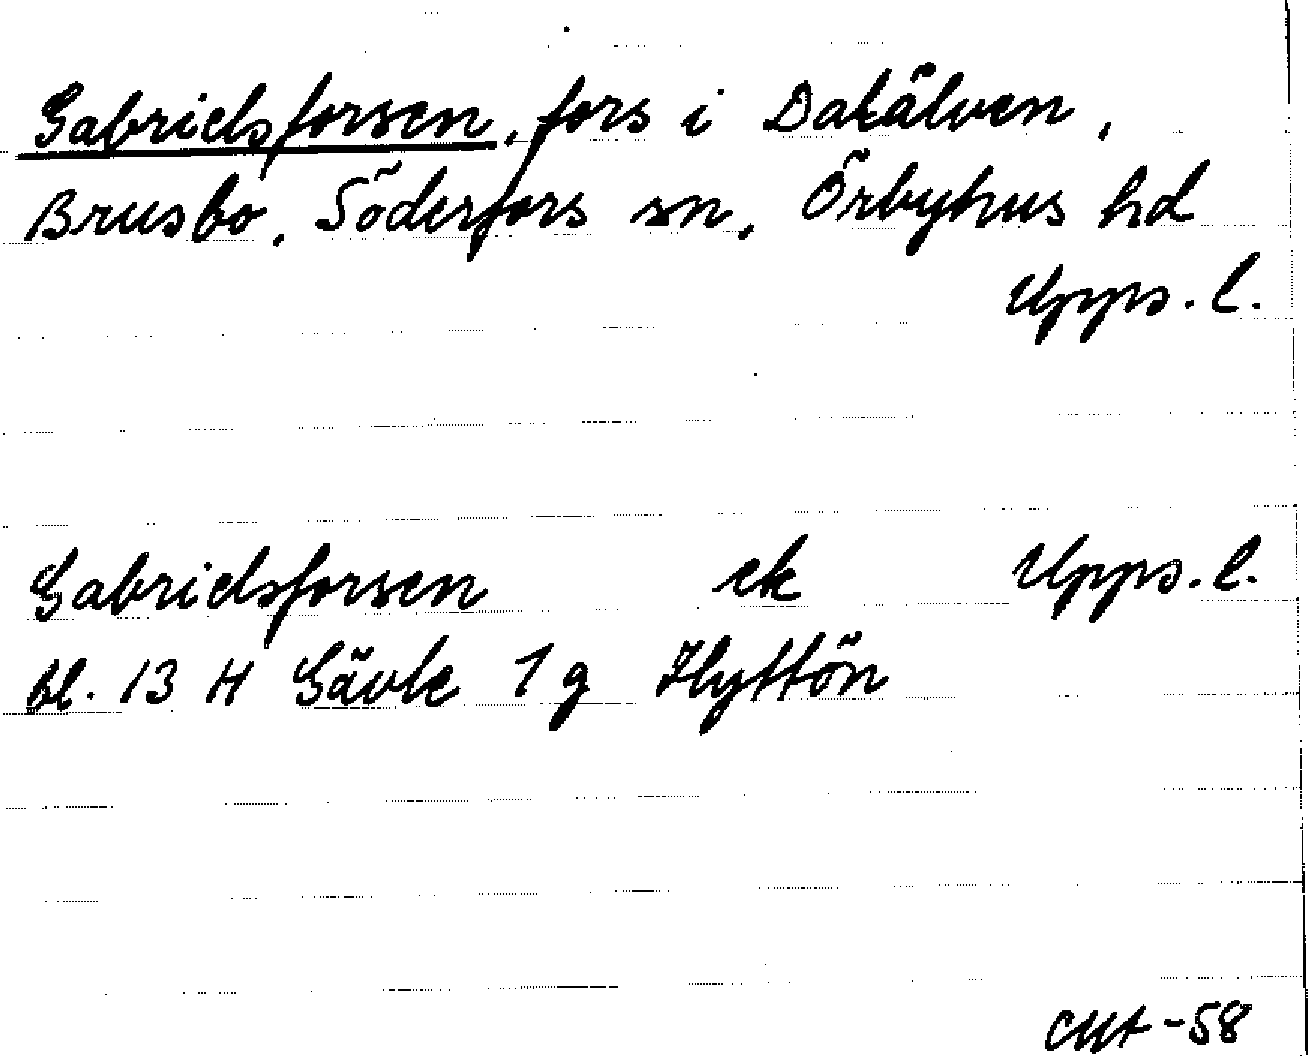 Gabrielsforsen, fors i Dalälven,
Brusbo, Söderfors sn, Örbyhus hd
Upps. l.
Gabrielsforsen ek Upps. l.
bl. 13 H Gävle 1 g Hyttön
-58